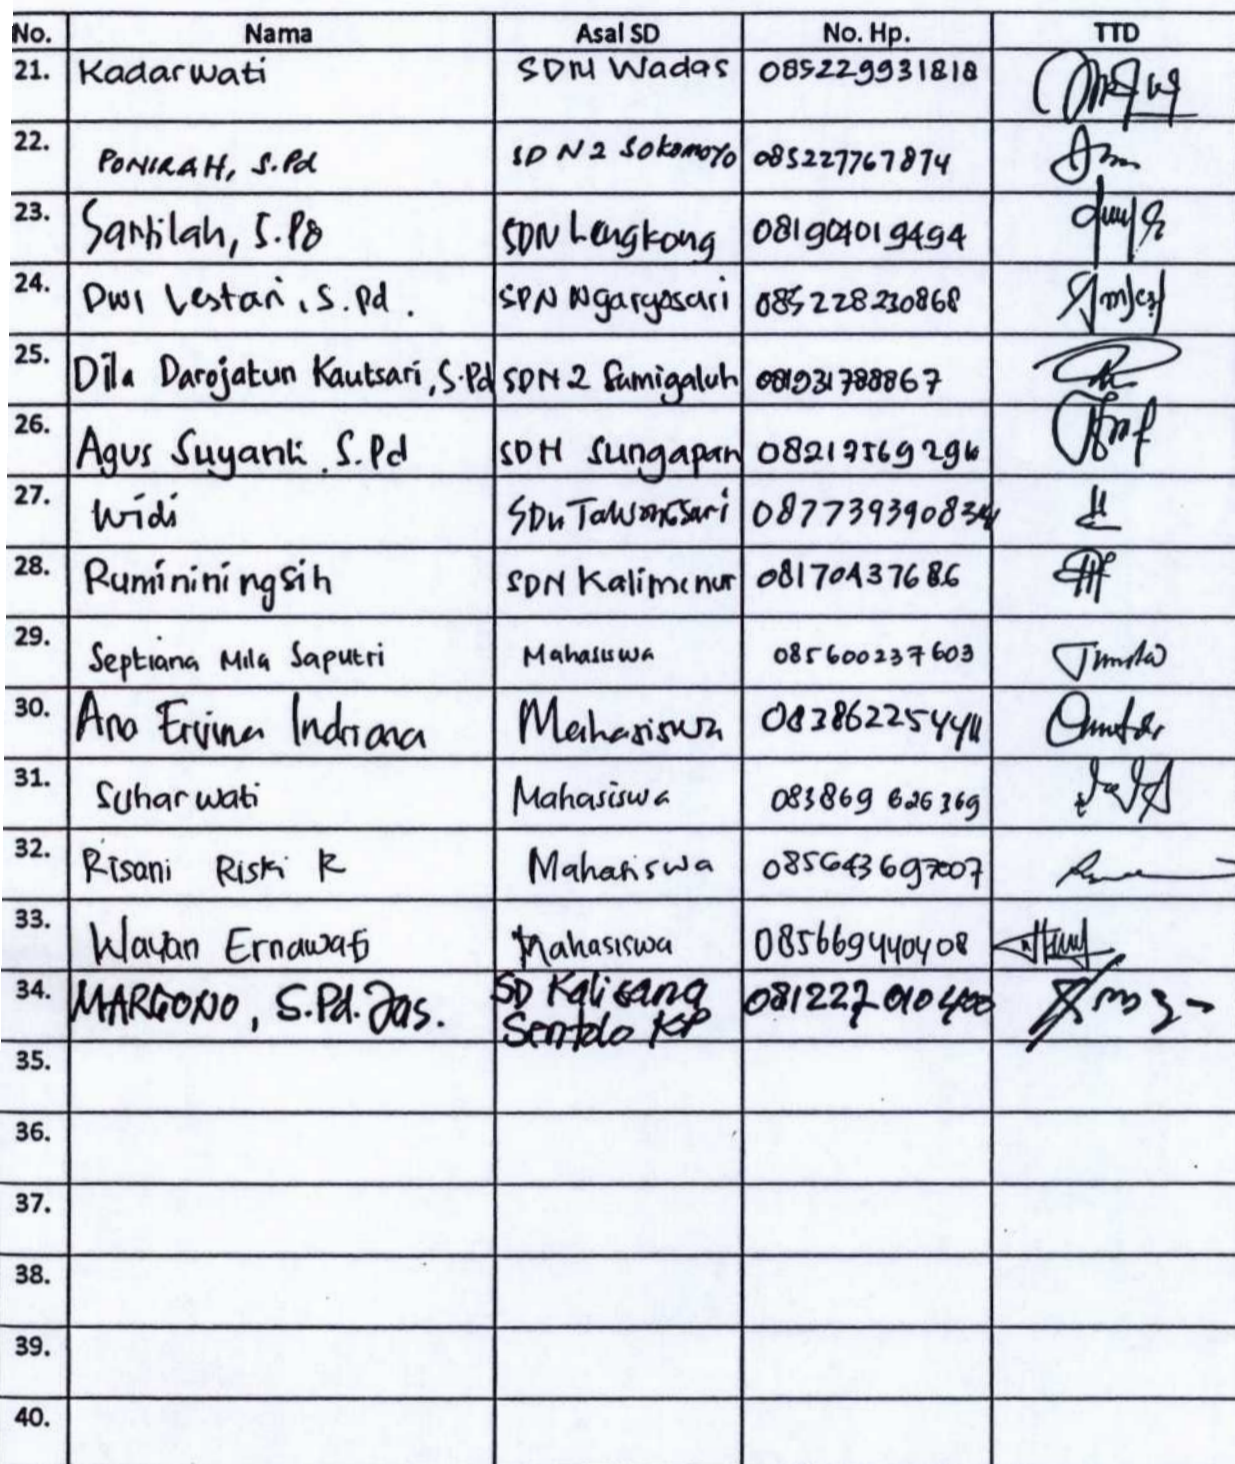 No. Nama Asal SD No. Hp. TTD
21. Kadarwati SDN Wadas 085229931818
22. PONIRAH, S.Pd SD N 2 Sokomoyo 085227767874
23. Santilah, S.Pd SDN Lengkong 081904019494
24. Dwi Lestari, S.Pd. SDN Ngargosari 085228230868
25. Dila Darojatun Kautsari, S.Pd SDN 2 Samigaluh 081931788867
26. Agus Suyanti, S.Pd SDN Sungapan
27. Widi SDN Tawangsari
28. Rumininingsih SDN Kalimenur 08170437686
29. Septiana Mila Saputri Mahasiswa 085600237603
30. Ana Ervina Indriana Mahasiswa
31. Suharwati Mahasiswa 083869 626369
32. Risani Riski R Mahasiswa 085643697007
33. Wayan Ernawati Mahasiswa 085669440408
34. MARGONO, S.Pd. Jas. SD Kalisana 081227 010400
Sentolo KP
35.
36.
37.
38.
39.
40.